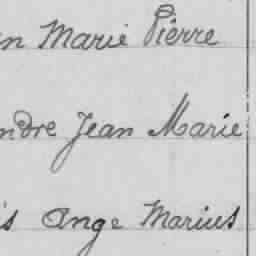 n Marie Pierre
ndre Jean Marie
is Ange Marius